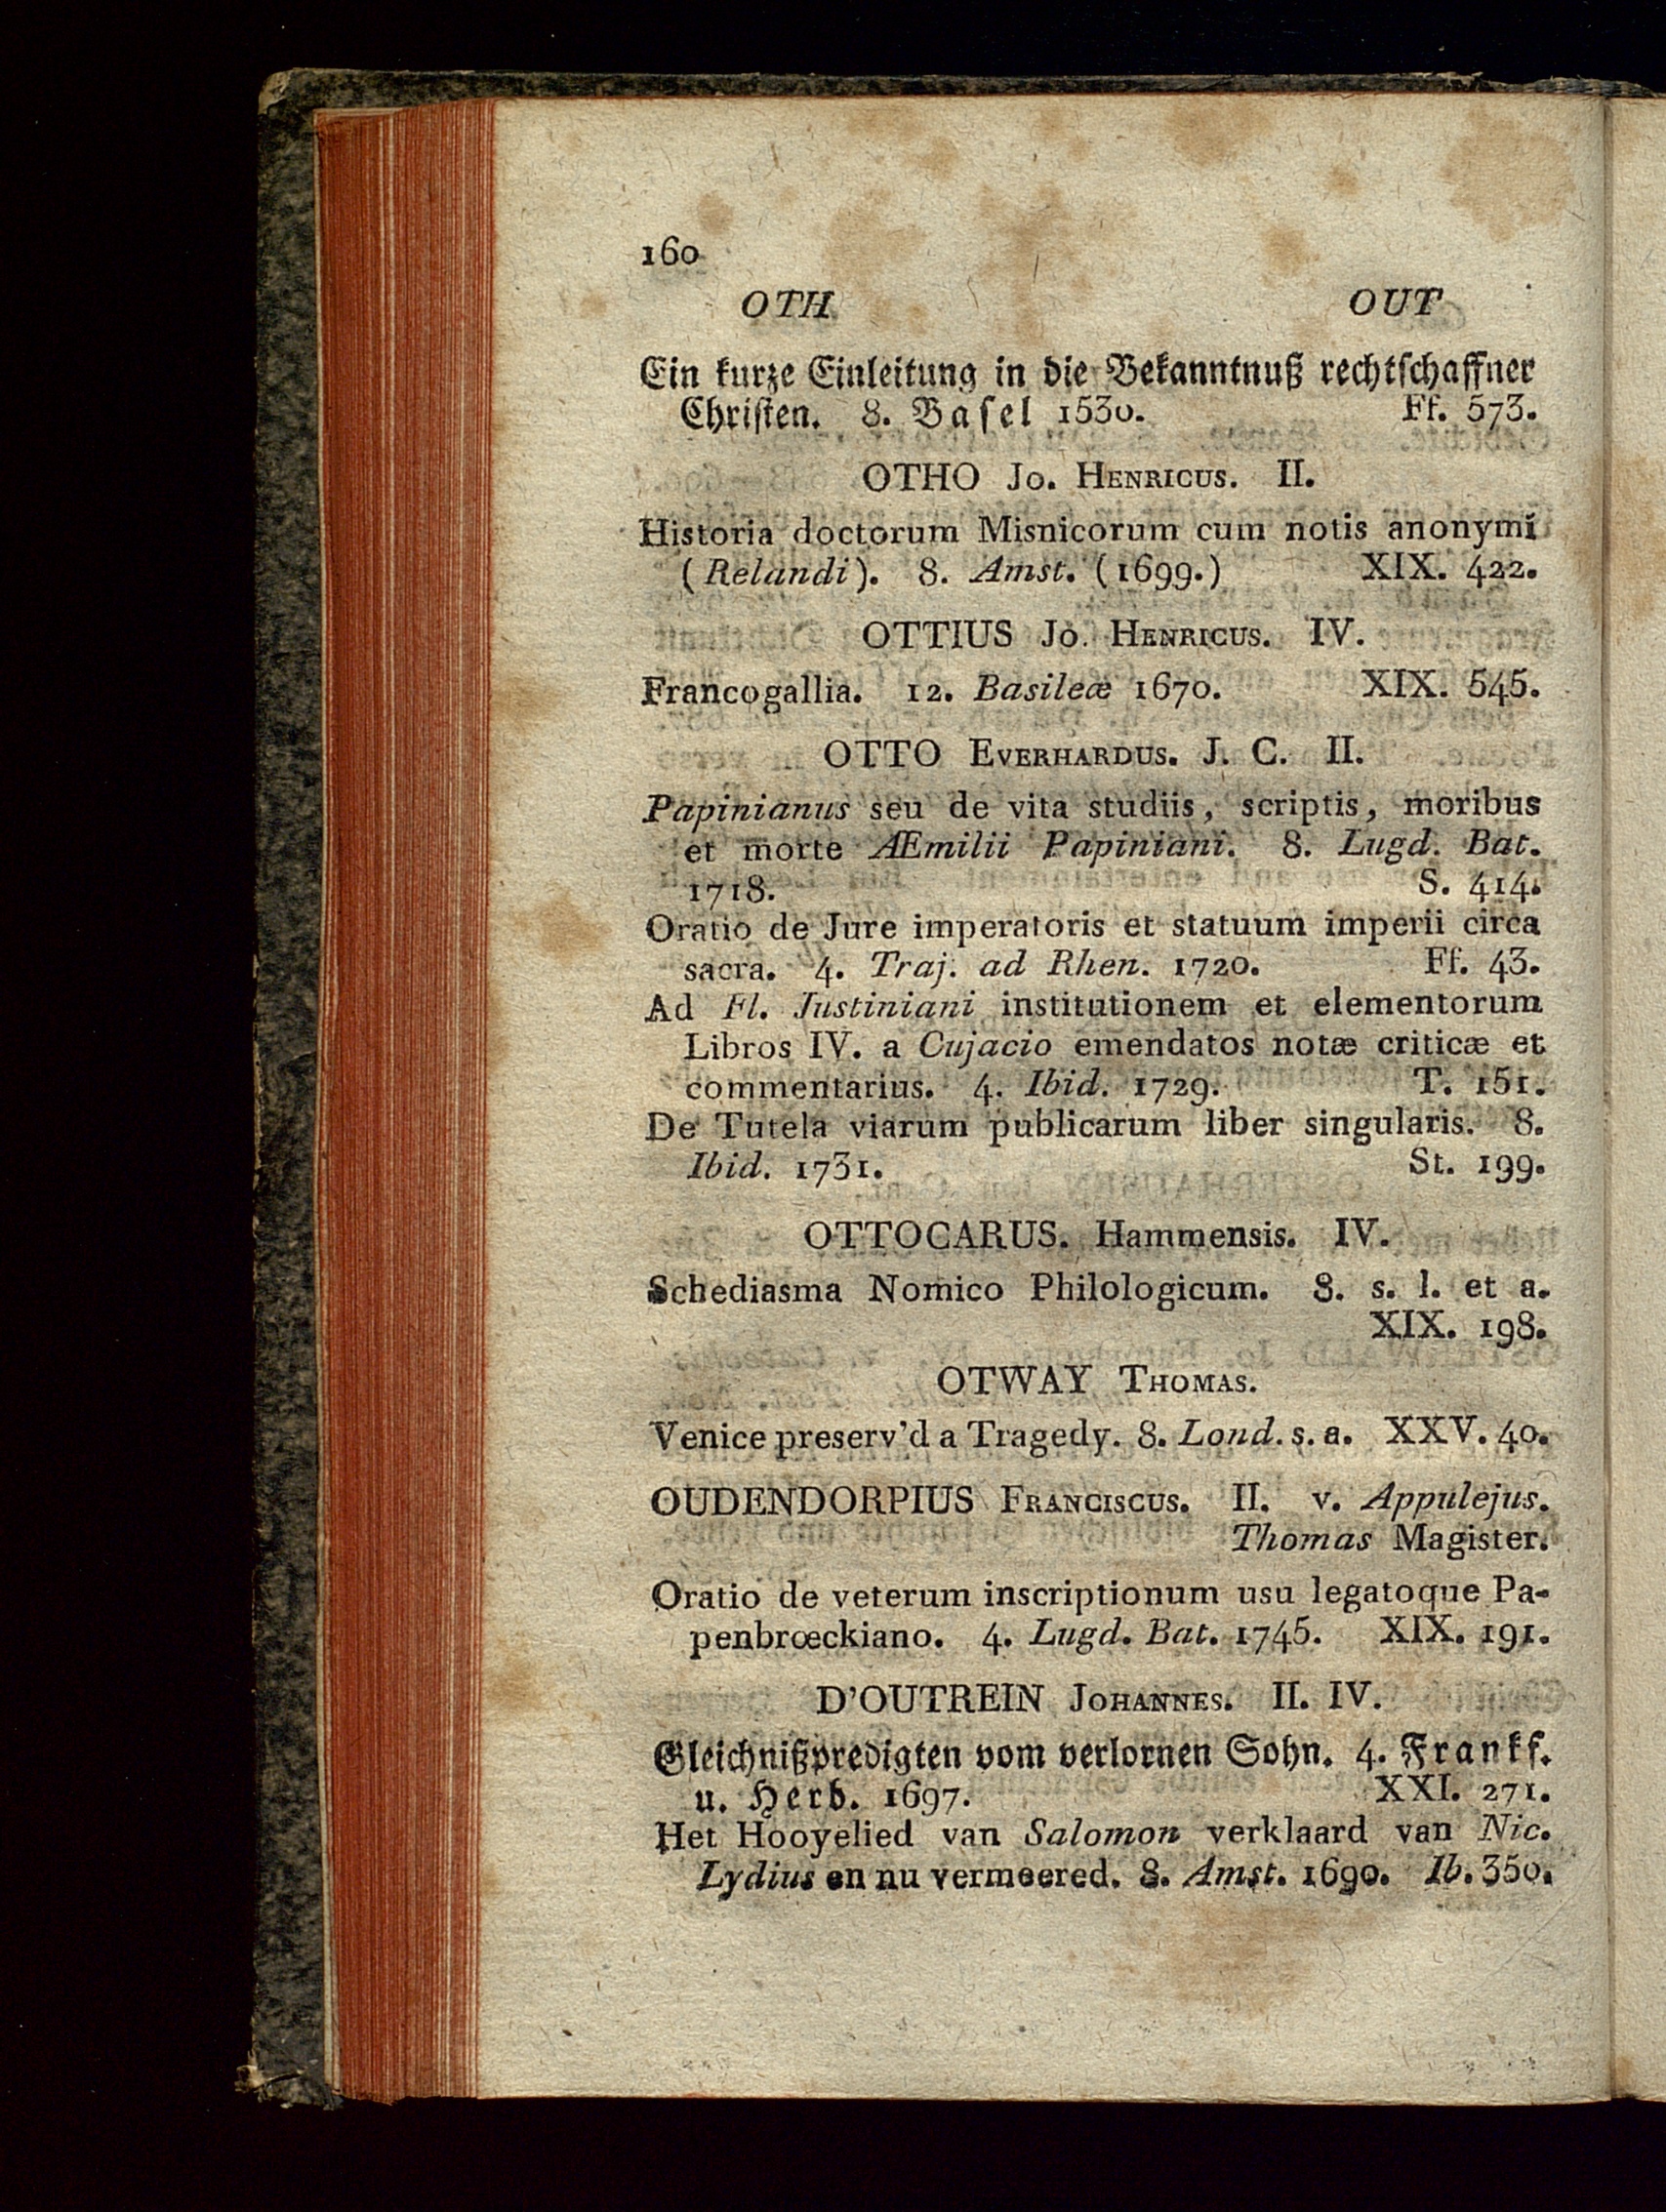 160
OTH OUT
Ein kurze Einleitung in die Bekanntnuß rechtschaffner
Christen. 8. Basel 1530. Ff. 573.
OTHO Jo. Henricus. II.
Historia doctorum Misnicorum cum notis anonymi
(Relandi). 8. Amst. (1699.) XIX. 422.
OTTIUS Jo. Henricus. IV.
Francogallia. 12. Basileæ 1670. XIX. 545.
OTTO Everhardus. J. C. II.
Papinianus seu de vita studiis, scriptis, moribus
et morte Æmilii Papiniani. 8. Lugd. Bat.
1718. S. 414.
Oratio de Jure imperatoris et statuum imperii circa
sacra. 4. Traj. ad Rhen. 1720. Ff. 43.
Ad Fl. Justiniani institutionem et elementorum
Libros IV. a Cujacio emendatos notæ criticæ et
commentarius. 4. Ibid. 1729. T. 151.
De Tutela viarum publicarum liber singularis. 8.
Ibid. 1731. St. 199.
OTTOCARUS. Hammensis. IV.
Schediasma Nomico Philologicum. 8. s. l. et a.
XIX. 198.
OTWAY Thomas.
Venice preserv'd a Tragedy. 8. Lond. s. a. XXV. 40.
OUDENDORPIUS Franciscus. II. v. Appulejus.
Thomas Magister.
Oratio de veterum inscriptionum usu legatoque Pa-
penbrœckiano. 4. Lugd. Bat. 1745. XIX. 191.
D'OUTREIN Johannes. II. IV.
Gleichnißpredigten vom verlornen Sohn. 4. Frankf.
u. Herb. 1697. XXI. 271.
Het Hooyelied van Salomon verklaard van Nic.
Lydius en nu vermeered. 8. Amst. 1690. Ib. 350.